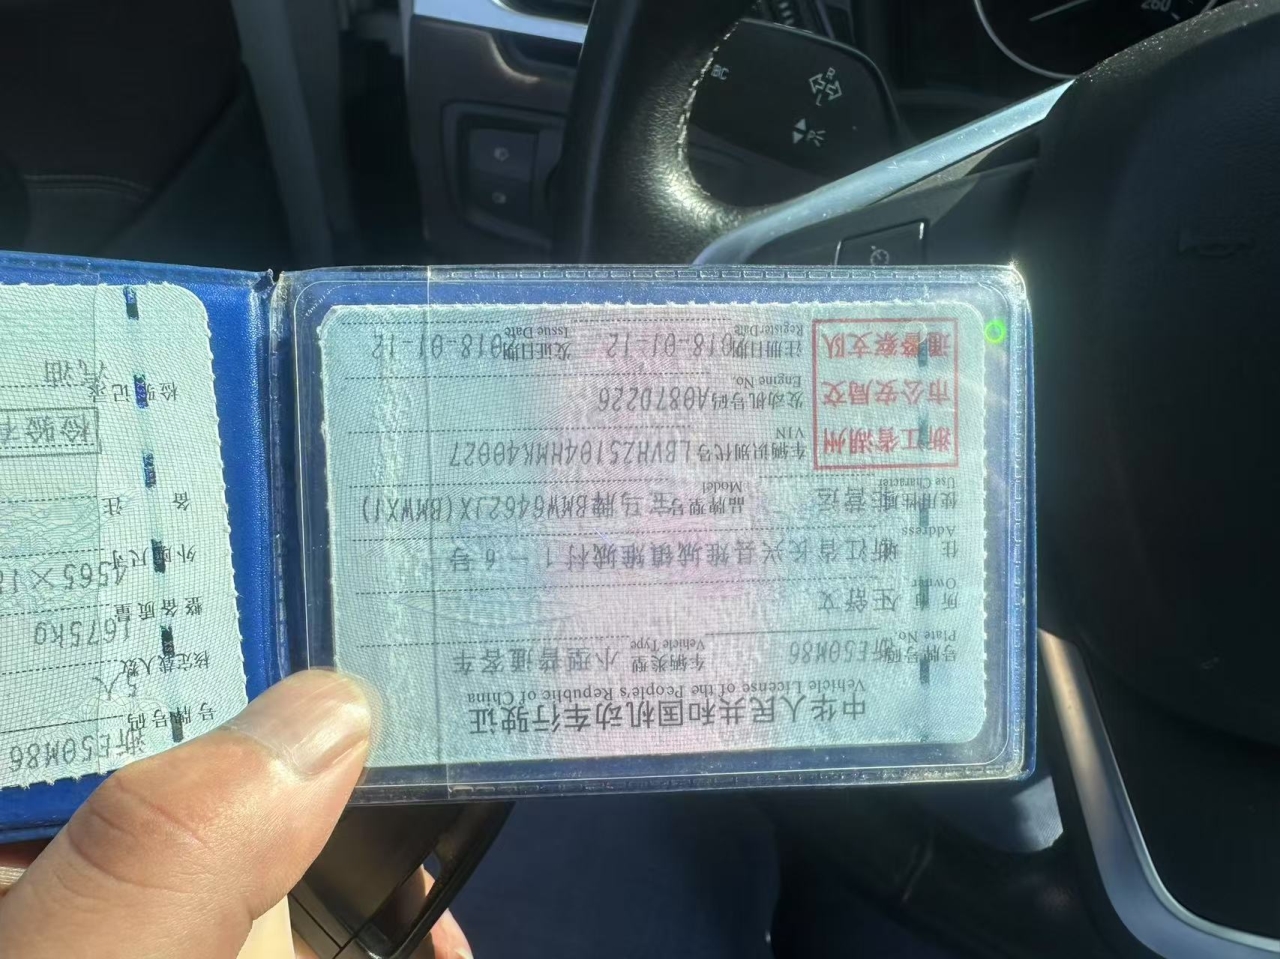 中华人民共和国机动车行驶证
Vehicle License of the People's Republic of China
号牌号码 浙E50M86 车辆类型 小型普通客车
Plate No. Vehicle Type
所
Owner
住 浙江省长兴县雉城镇雉城村1-6号
Address
使用性 非营运 品牌型号 宝马牌BMW6462JX(BMWX1)
Use Character Model
车辆识别代号 LBVHZ5104HMK40027
VIN
发动机号码 A0870226
Engine No.
注册日期 2018-01-12 发证日期 2018-01-12
Register Date Issue Date
浙江省湖州
市公安局交
通警察支队
号牌号码 浙E50M86
核定载人数 5人
整备质量 1675kg
外廓尺寸 4565×18
备 注
检验
检验记录 汽油
BC
R
L
260